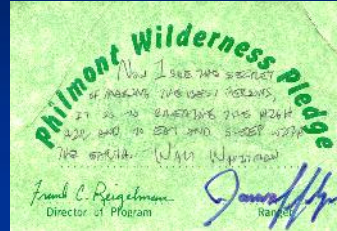 Philmont Wilderness Pledge
Now I see the secret
of making the best persons,
it is to breathe the high
air and to eat and sleep with
the earth. Walt Whitman
Frank C. Reigelman
Director of Program
Ranger